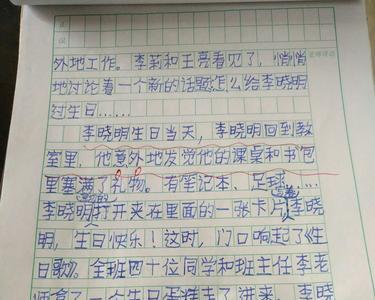 外地工作。李莉和王亮看见了,悄悄
地讨论着一个新的话题:怎么给李晓明
过生日……
李晓明生日当天,李晓明回到教
室里,他意外地发觉他的课桌和书包
里塞满了礼物。有笔记本、足球……
李晓明打开夹在里面的一张卡片,李晓
明,生日快乐!这时,门口响起了《生
日歌》。全班四十位同学和班主任李老
师拿了一个生日蛋糕走了进来,李晓